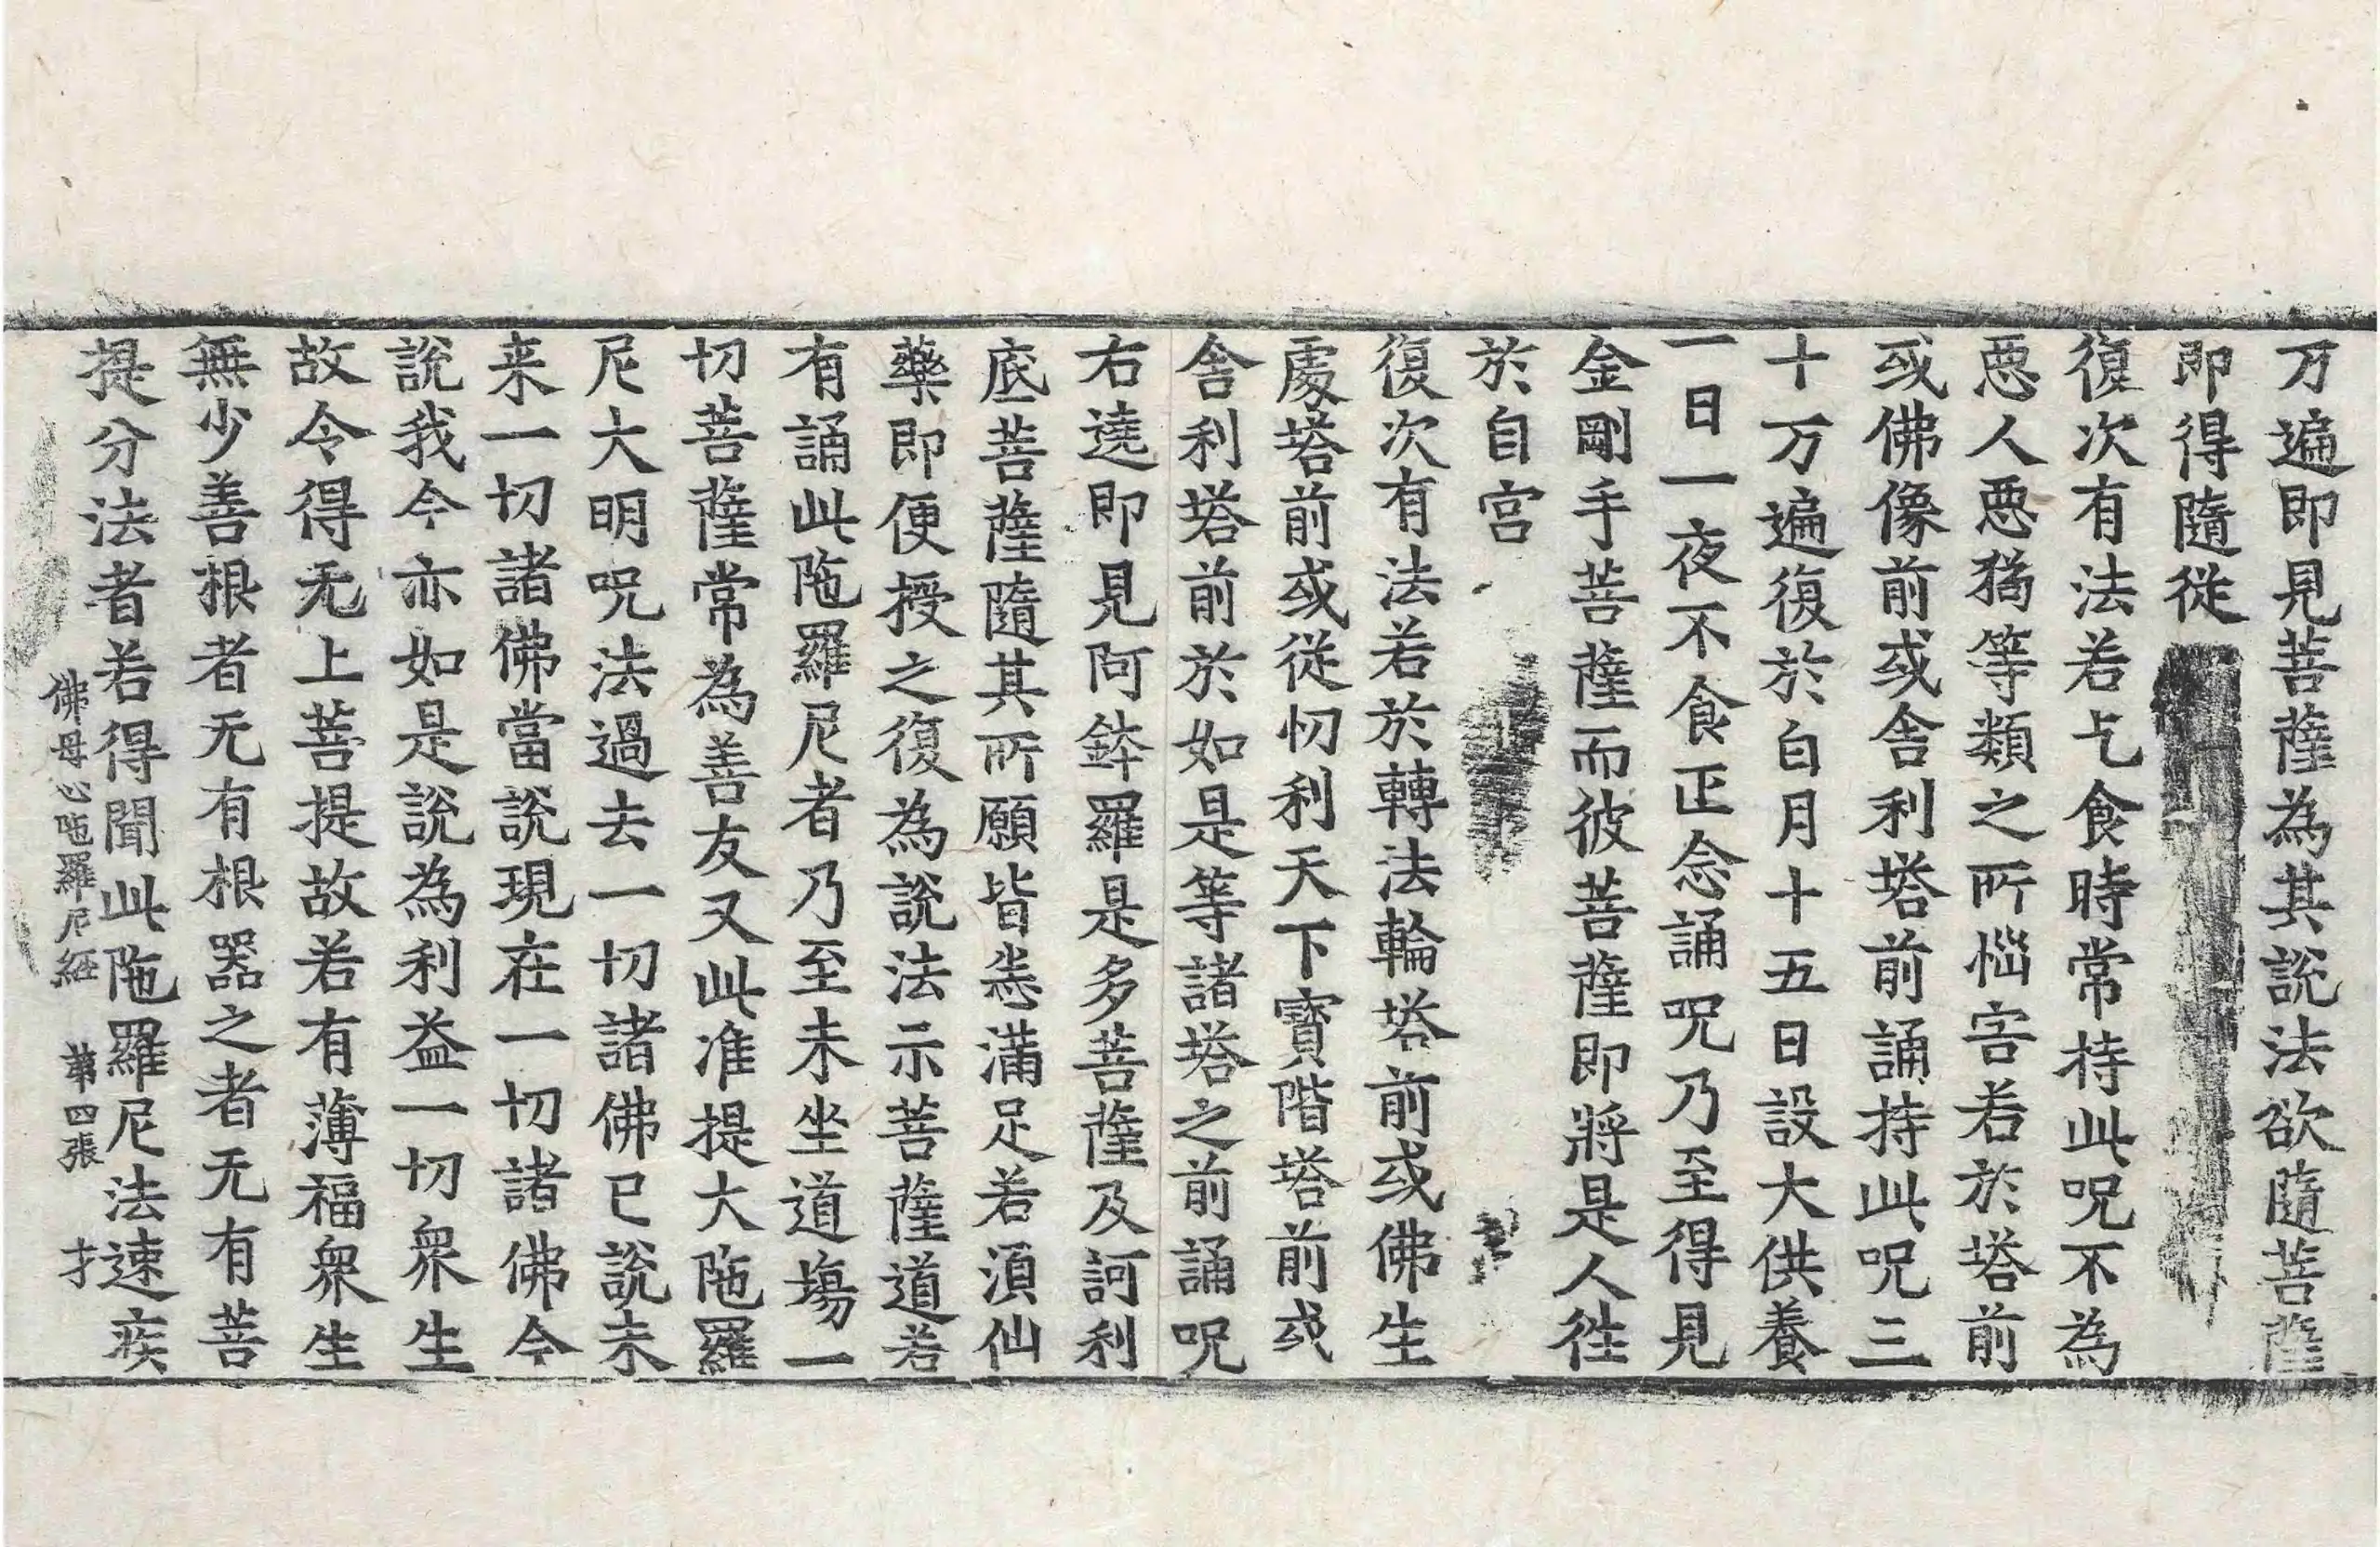 万遍即見菩薩為其説法欲隨菩薩
即得隨従
復次有法若乞食時常持此呪不為
惡人惡猪等類之所惱害若於塔前
或佛像前或舎利塔前誦持此呪三
十万遍復於白月十五日設大供養
一日一夜不食正念誦呪乃至得見
金剛手菩薩而彼菩薩即將是人往
於自宫
復次有法若於轉法輪塔前或佛生
處塔前或従忉利天下寶階塔前或
舎利塔前於如是等諸塔之前誦呪
右遶即見阿鉢羅是多菩薩及訶利
底菩薩隨其所願皆悉滿足若湏仙
藥即便授之復為説法示菩薩道若
有誦此陁羅尼者乃至未坐道塲一
切菩薩常為善友又此准提大陁羅
尼大明呪法過去一切諸佛已説未
来一切諸佛當説現在一切諸佛今
説我今亦如是説為利益一切衆生
故令得无上菩提故若有薄福衆生
無少善根者无有根器之者无有菩
提分法者若得聞此陁羅尼法速疾
佛母心陁羅尼経 第四張 才